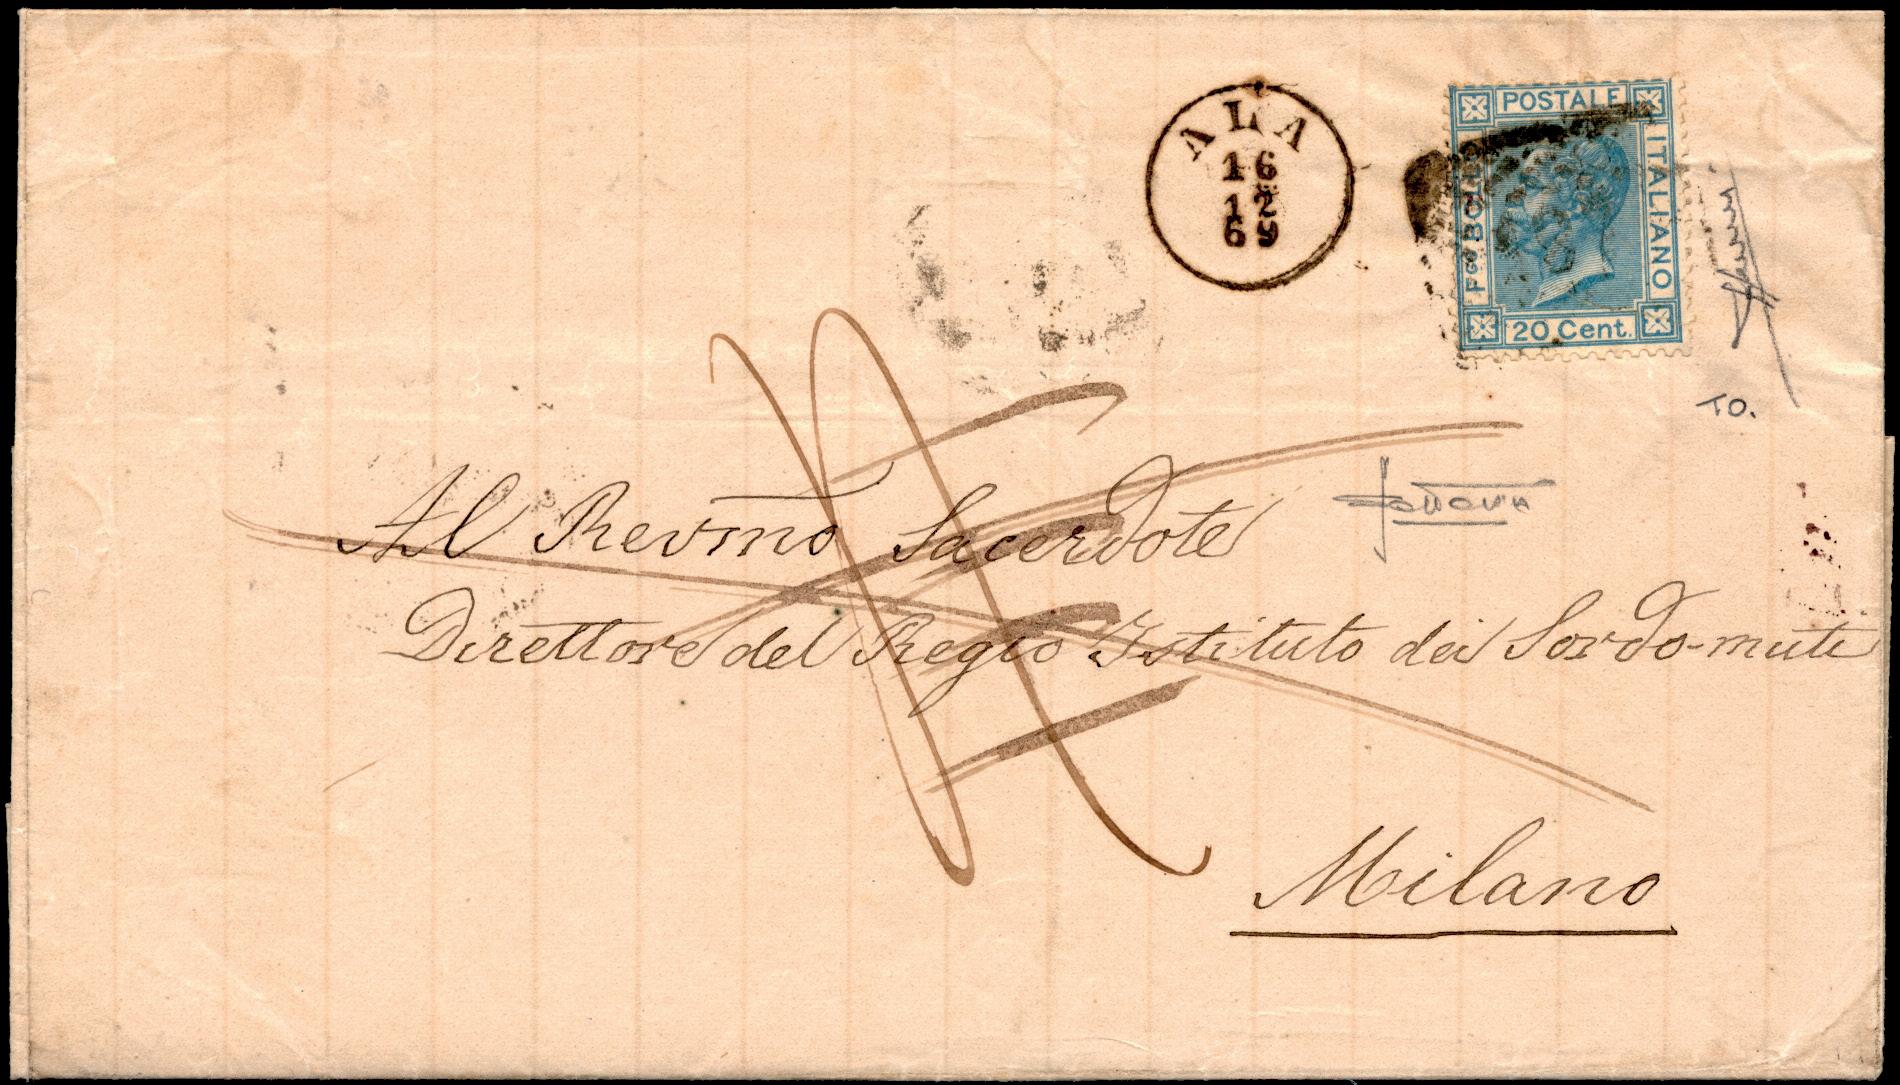 ALA
16
12
69
POSTALE
Fco BOLLO
ITALIANO
20 Cent.
TO.
Al Revmo Sacerdote
Direttore del Regio Istituto dei Sordo-muti
Milano